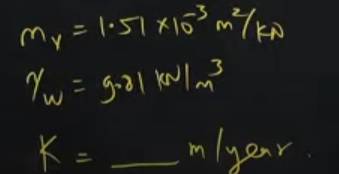 mv = 1.51 × 10⁻³ m²/kN
γw = 9.81 kN/m³
K = ___ m/year.